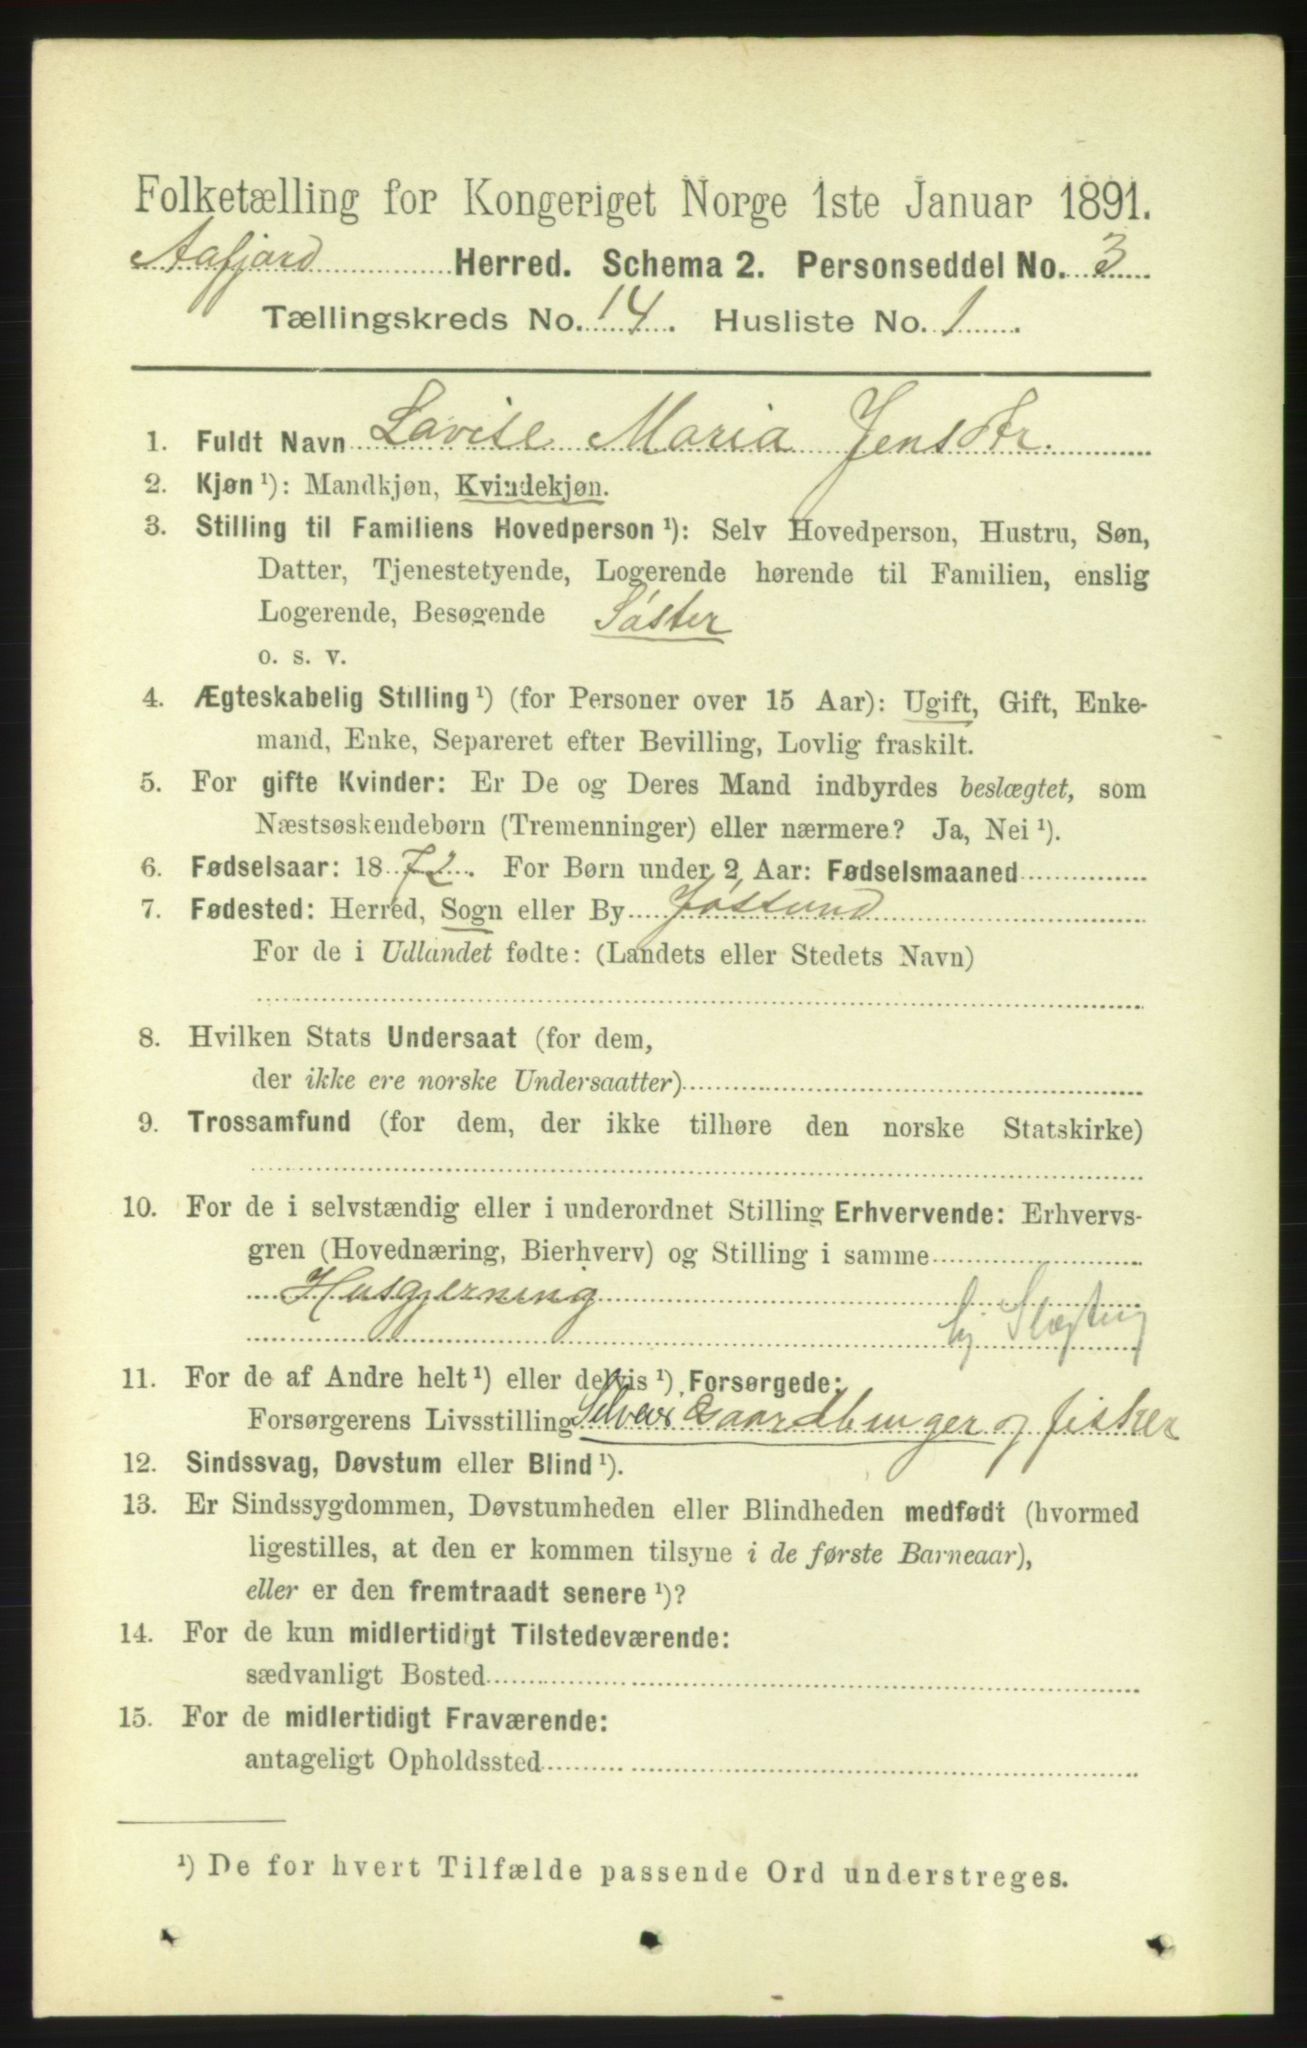 Folketælling for Kongeriget Norge 1ste Januar 1891.
Aafjord Herred. Schema 2. Personseddel No. 3
Tællingskreds No. 14. Husliste No. 1.
1. Fuldt Navn Lavise Maria Jensdtr.
2. Kjøn ¹): Mandkjøn, Kvindekjøn.
3. Stilling til Familiens Hovedperson ¹): Selv Hovedperson, Hustru, Søn,
Datter, Tjenestetyende, Logerende hørende til Familien, enslig
Logerende, Besøgende Søster
o. s. v.
4. Ægteskabelig Stilling ¹) (for Personer over 15 Aar): Ugift, Gift, Enke-
mand, Enke, Separeret efter Bevilling, Lovlig fraskilt.
5. For gifte Kvinder: Er De og Deres Mand indbyrdes beslægtet, som
Næstsøskendebørn (Tremenninger) eller nærmere? Ja, Nei ¹).
6. Fødselsaar: 1872. For Børn under 2 Aar: Fødselsmaaned
7. Fødested: Herred, Sogn eller By Jøssund
For de i Udlandet fødte: (Landets eller Stedets Navn)
8. Hvilken Stats Undersaat (for dem,
der ikke ere norske Undersaatter)
9. Trossamfund (for dem, der ikke tilhøre den norske Statskirke)
10. For de i selvstændig eller i underordnet Stilling Erhvervende: Erhvervs-
gren (Hovednæring, Bierhverv) og Stilling i samme
Husgjerning
Slægtning
11. For de af Andre helt ¹) eller delvis ¹) Forsørgede:
Forsørgerens Livsstilling Selveier Gaardbruger og fisker
12. Sindssvag, Døvstum eller Blind ¹).
13. Er Sindssygdommen, Døvstumheden eller Blindheden medfødt (hvormed
ligestilles, at den er kommen tilsyne i de første Barneaar),
eller er den fremtraadt senere ¹)?
14. For de kun midlertidigt Tilstedeværende:
sædvanligt Bosted
15. For de midlertidigt Fraværende:
antageligt Opholdssted
¹) De for hvert Tilfælde passende Ord understreges.